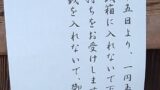 五日より、一円玉
銭箱に入れないで下
持ちをお受けします
銭を入れないで、御